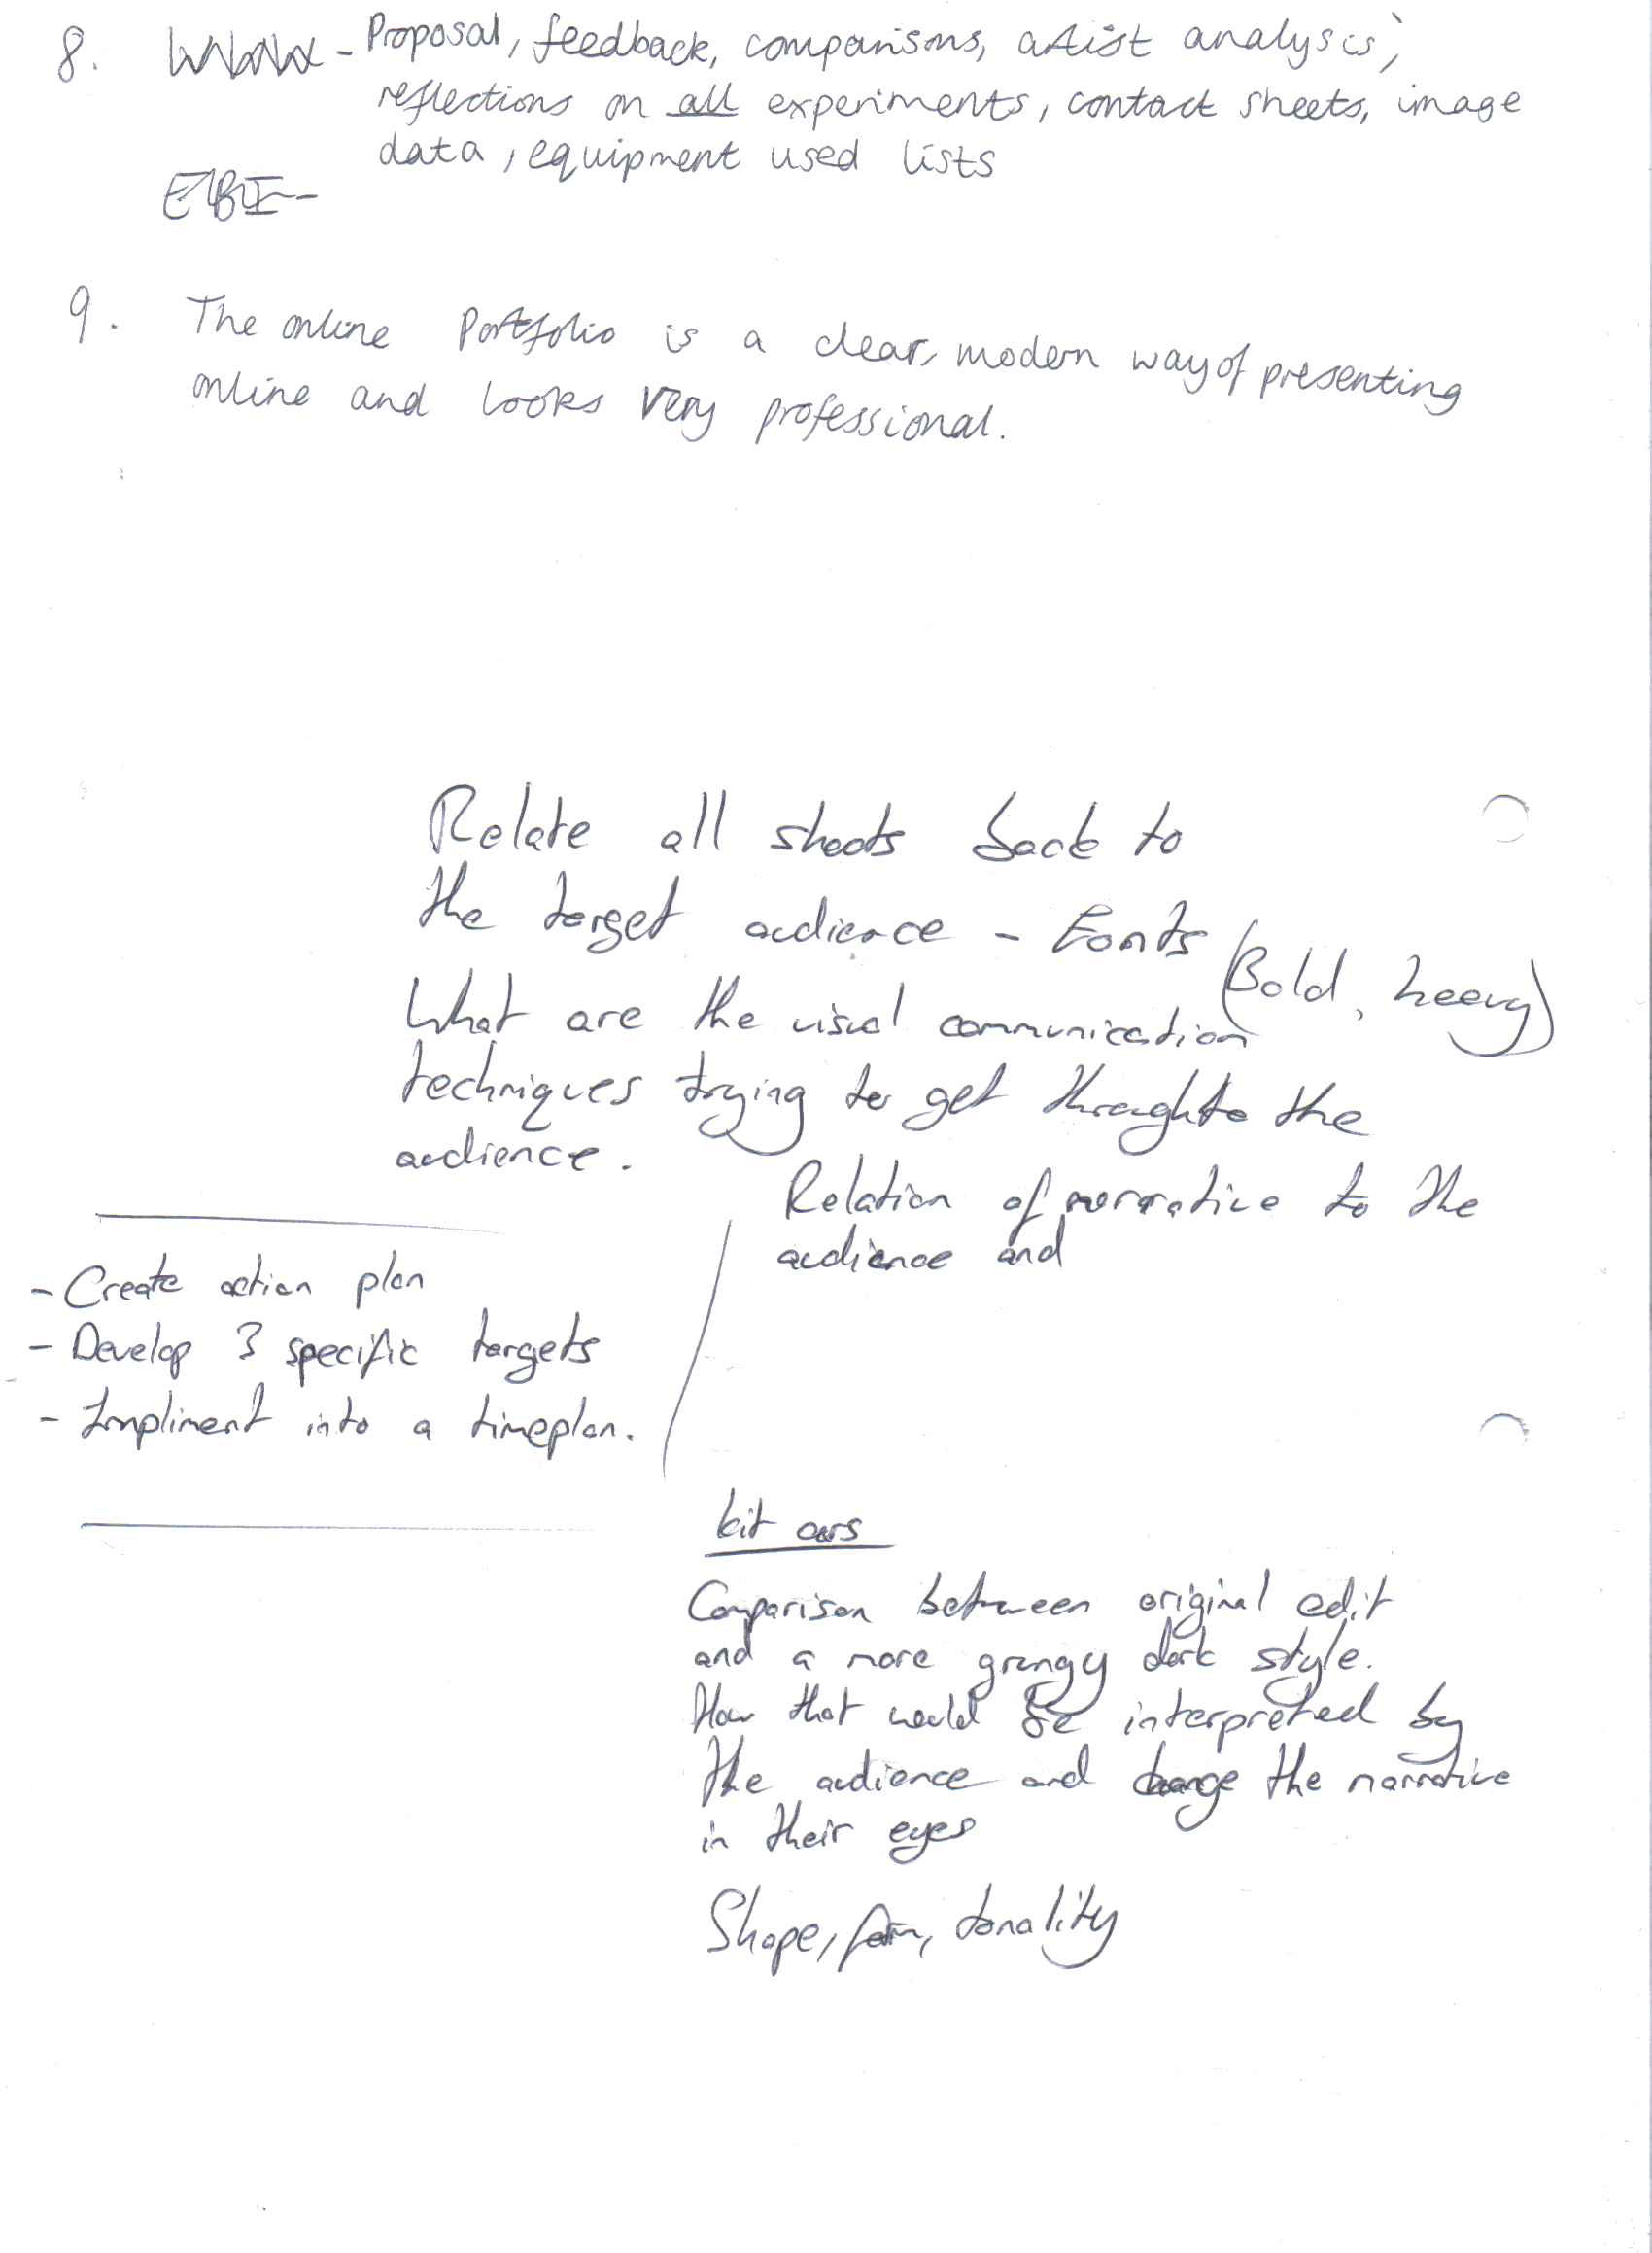 8. WWW - Proposal, feedback, comparisons, artist analysis,
reflections on all experiments, contact sheets, image
data, equipment used lists
EBI -
9. The online Portfolio is a clear, modern way of presenting
online and looks very professional.
Relate all shoots back to
the target audience - Fonts (Bold, heavy)
What are the visual communication
techniques trying to get through to the
audience.
Relation of narrative to the
audience and
- Create action plan
- Develop 3 specific targets
- Impliment into a timeplan.
kit cars
Comparison between original edit
and a more grungy dark style.
How that would be interpreted by
the audience and change the narrative
in their eyes
Shape, form, tonality